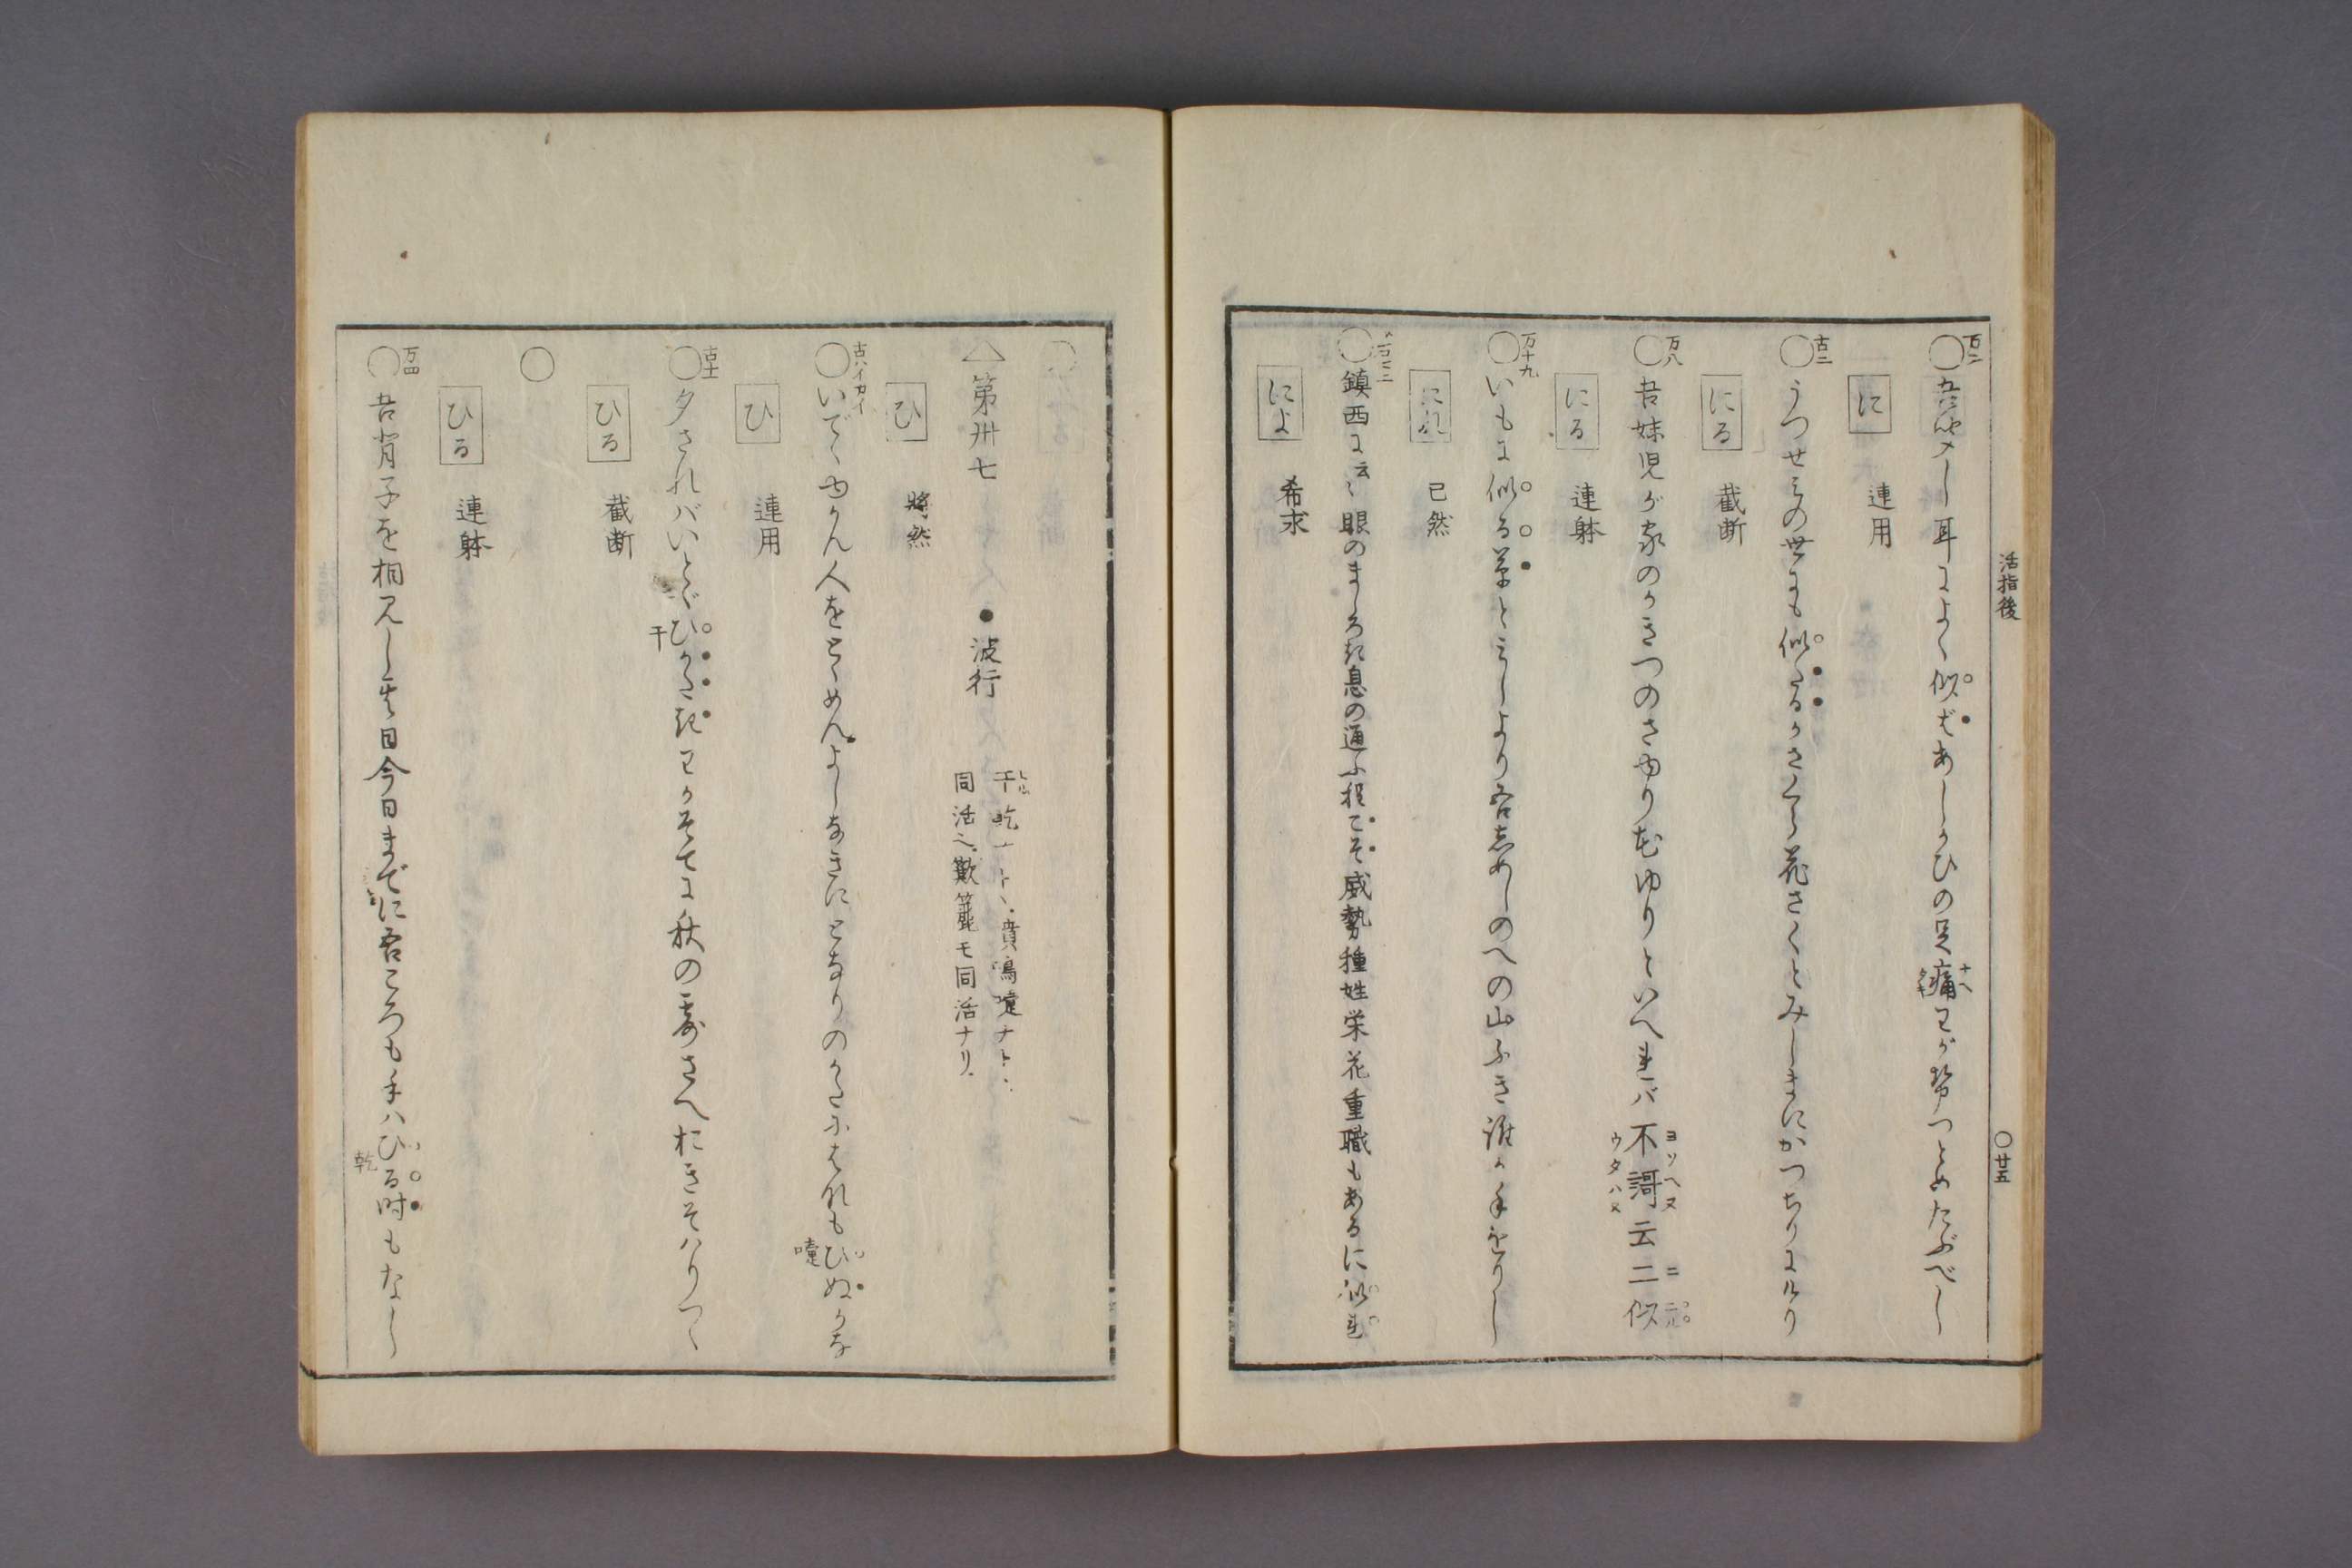 活指後
○廿五
万二
○吾聞し耳によく似ばあしかひの足痛わが勢つとめたぶべし
に 連用
古二
○うつせみの世にも似たるかさくら花さくとみしまにかつちりにけり
にる 截断
万八
○吾妹児が家のかきつのさゆり花ゆりといへればバ不謌云二似
ヨソヘヌ ニ ニル
ウタハヌ
にる 連躰
万十九
○いもに似る草とみしより吾志めしのべの山ふき誰か手をりし
にれ 已然
○鎮西に云々眼のましろき息の通ふ程こそ威勢種姓栄花重職もあるに似れ
によ 希求
○
△第卅七 ●波行
干乾ナド、賁鳴嚏ナド、
同活ニ歎簸モ同活ナリ
ひ 将然
古ハイカイ
○いでゝゆかん人をとゝめんよしなきにとなりのかたにはなもひぬかな
嚏
ひ 連用
古十一
○夕さればいとゞひかたきわかそでに秋の露さへおきそハりつゝ
干
ひる 截断
○
ひる 連躰
万四
○吾背子を相見し其日今日までに吾ころも手ハひる時もなし
乾